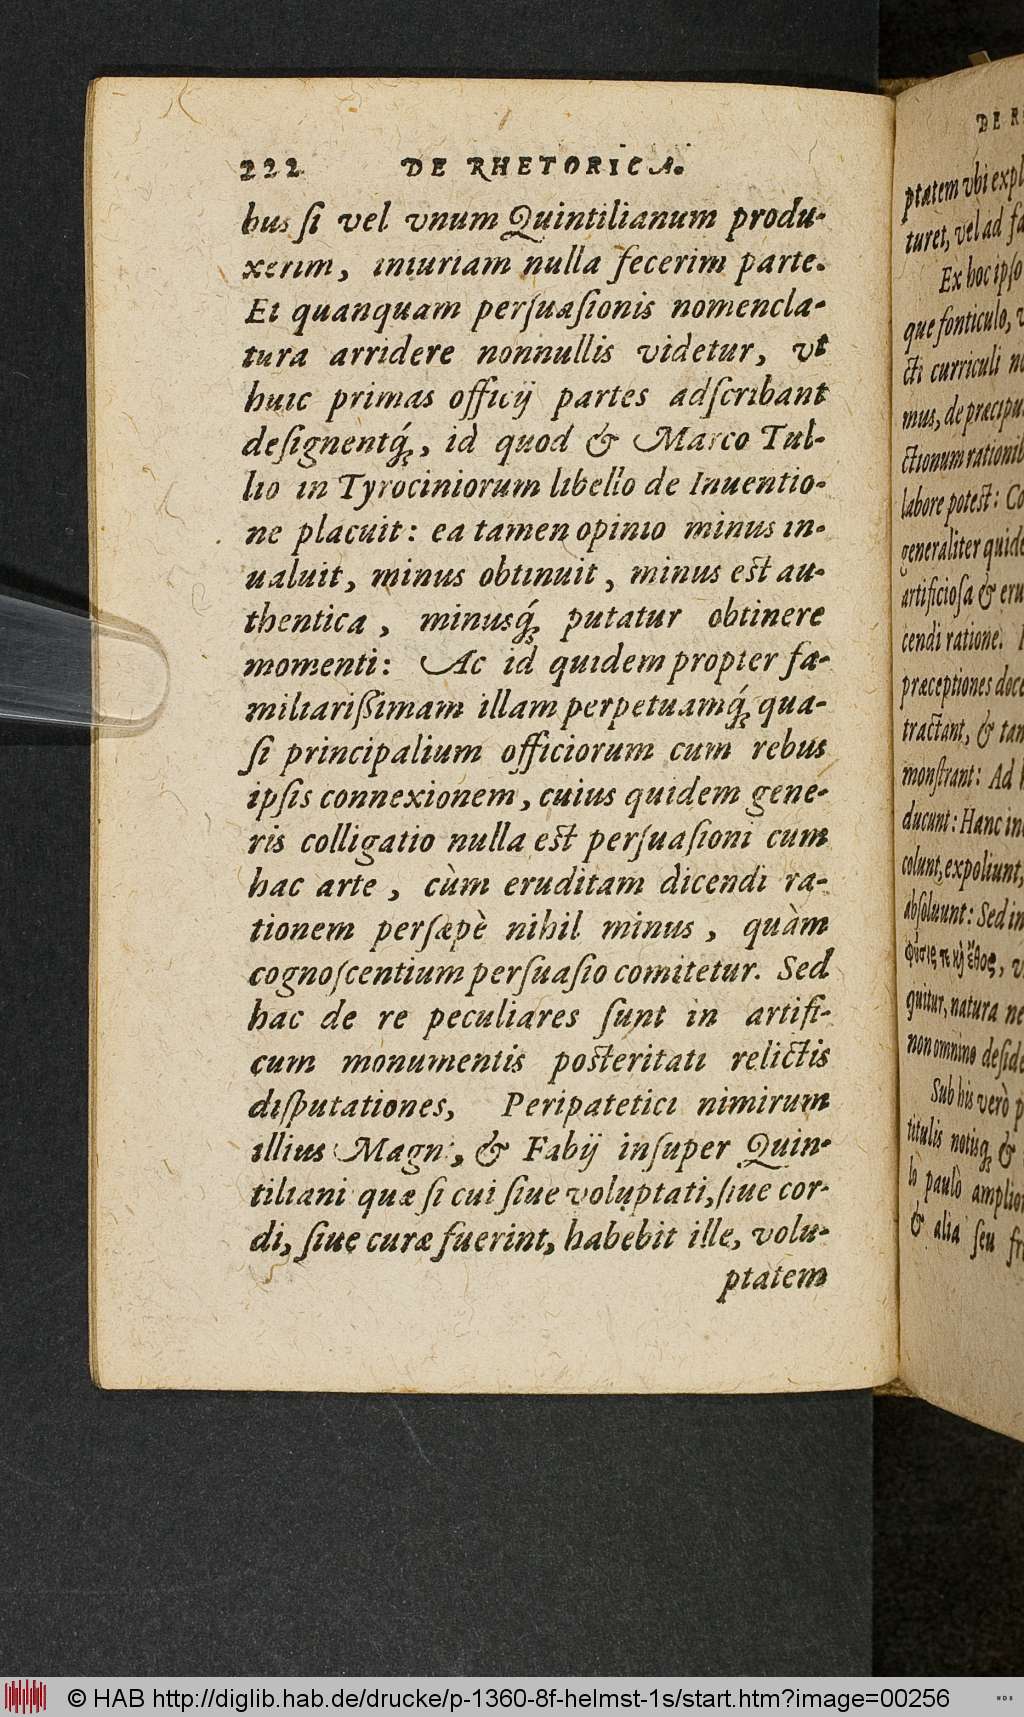 222 DE RHETORICA.
bus ſi vel vnum Quintilianum produ-
xerim, iniuriam nulla fecerim parte.
Et quanquam perſuaſionis nomencla-
tura arridere nonnullis videtur, vt
huic primas officij partes adſcribant
deſignentq́;, id quod & Marco Tul-
lio in Tyrociniorum libello de Inuentio-
ne placuit: ea tamen opinio minus in-
ualuit, minus obtinuit, minus est au-
thentica, minusq́; putatur obtinere
momenti: Ac id quidem propter fa-
miliariſsimam illam perpetuamq́; qua-
ſi principalium officiorum cum rebus
ipſis connexionem, cuius quidem gene-
ris colligatio nulla est perſuaſioni cum
hac arte, cùm eruditam dicendi ra-
tionem perſæpè nihil minus, quàm
cognoſcentium perſuaſio comitetur. Sed
hac de re peculiares ſunt in artifi-
cum monumentis posteritati relictis
diſputationes, Peripatetici nimirum
illius Magni, & Fabij inſuper Quin-
tiliani quæ ſi cui ſiue voluptati, ſiue cor-
di, ſiue curæ fuerint, habebit ille, volu-
ptatem
DE R
ptatem vbi expl
turet, vel ad fa
Ex hoc ipſo
que fonticulo, v
cti curriculi n
mus, de præcipu
ctionum rationib
labore potest: Co
generaliter quide
artificioſa & eru
cendi ratione.
præceptiones doce
tractant, & tan
monſtrant: Ad h
ducunt: Hanc in
colunt, expoliunt,
abſoluunt: Sed in
φύσις τε κὶ ἔθος, v
quitur, natura ne
non omnino deſide
Sub his verò p
titulis notisq; &
lò paulò amplior
& alia ſeu fr
© HAB http://diglib.hab.de/drucke/p-1360-8f-helmst-1s/start.htm?image=00256